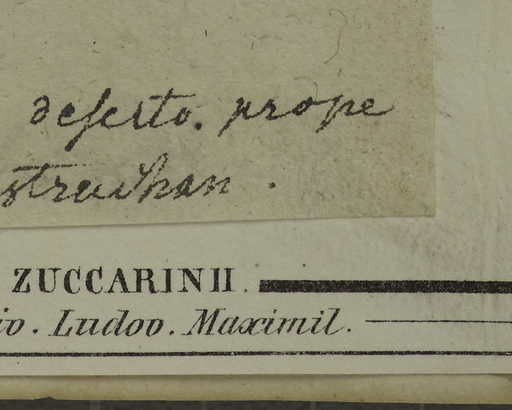 deserto. prope
strachan.
ZUCCARINII.
io. Ludov. Maximil.